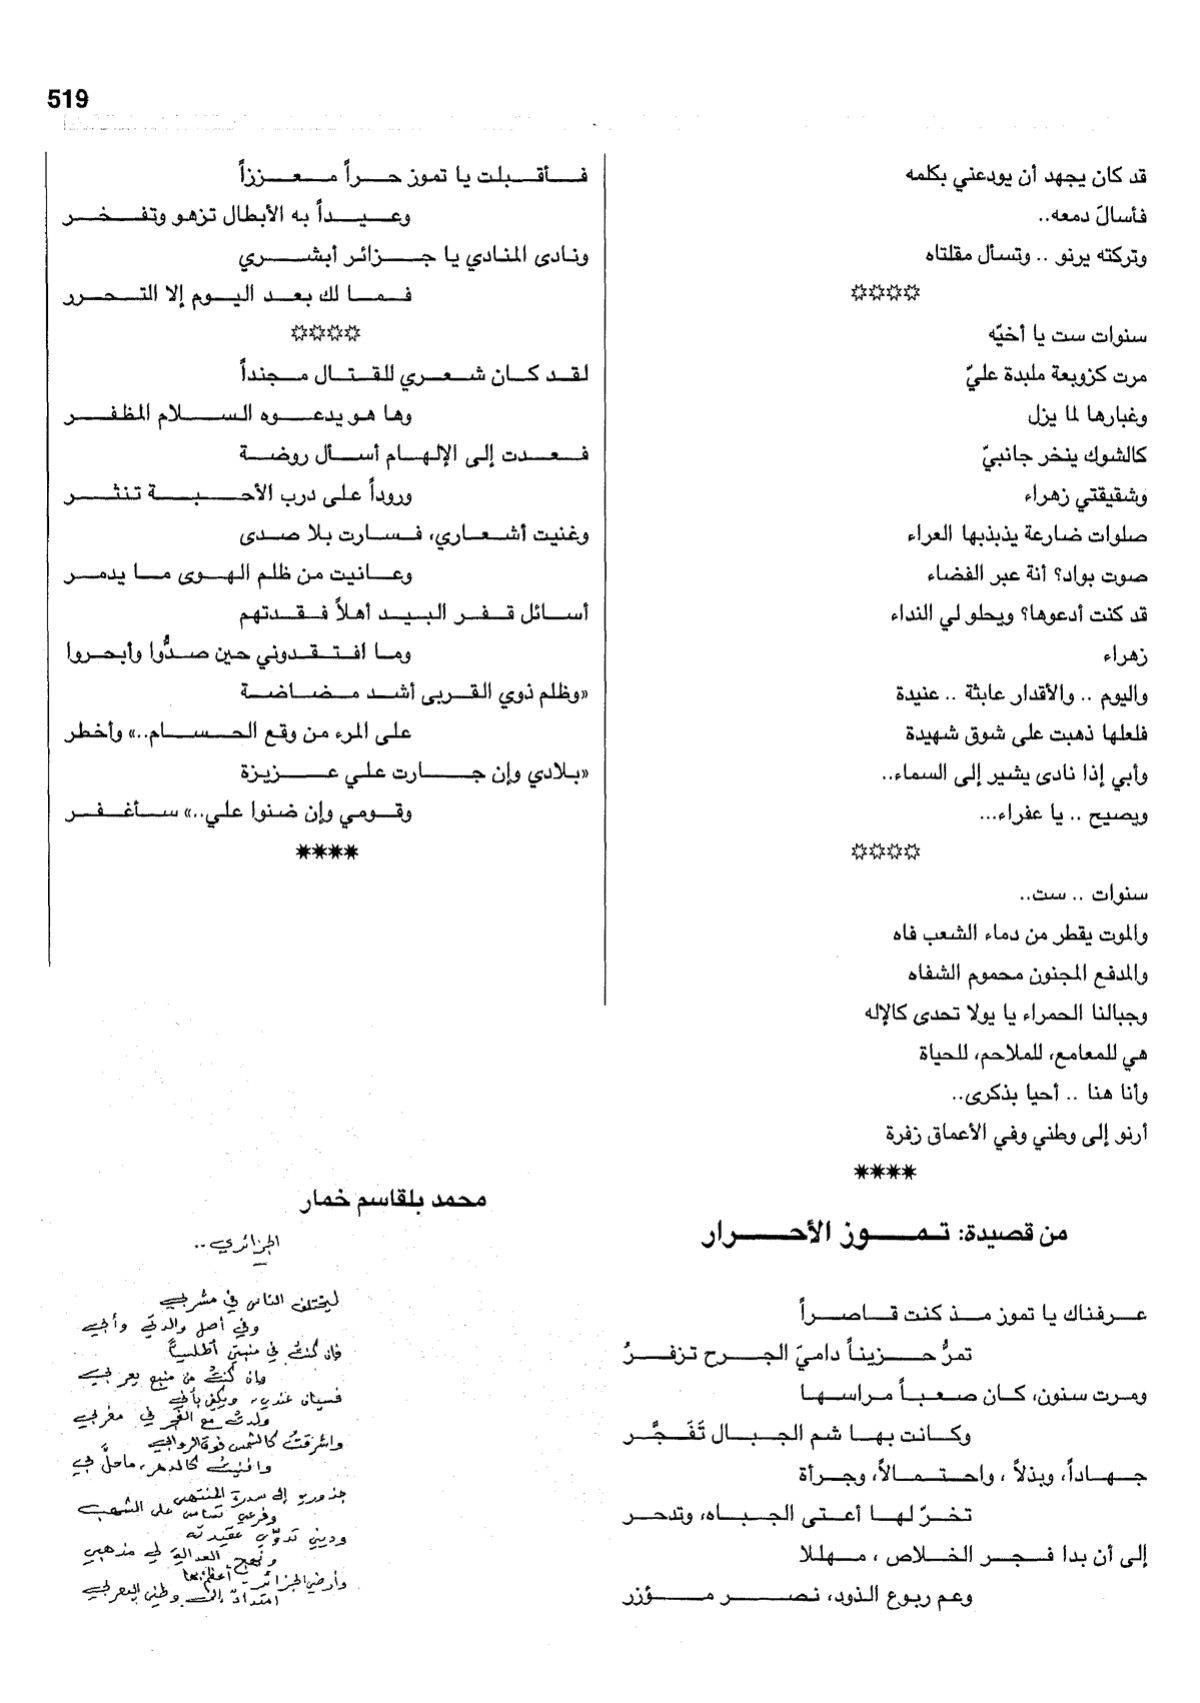 519
قد كان يجهد أن يودعني بكلمه
فأسالَ دمعه..
وتركته يرنو .. وتسأل مقلتاه
¤¤¤¤
سنوات ست يا أخيّه
مرت كزوبعة ملبدة عليّ
وغبارها لما يزل
كالشوك ينخر جانبيّ
وشقيقتي زهراء
صلوات ضارعة يذبذبها العراء
صوت بواد؟ أنة عبر الفضاء
قد كنت أدعوها؟ ويحلو لي النداء
زهراء
واليوم .. والأقدار عابثة .. عنيدة
فلعلها ذهبت على شوق شهيدة
وأبي إذا نادى يشير إلى السماء..
ويصيح .. يا عفراء...
¤¤¤¤
سنوات .. ست..
والموت يقطر من دماء الشعب فاه
والمدفع المجنون محموم الشفاه
وجبالنا الحمراء يا يولا تحدى كالإله
هي للمعامع، للملاحم، للحياة
وأنا هنا .. أحيا بذكرى..
أرنو إلى وطني وفي الأعماق زفرة
****
من قصيدة: تمـوز الأحـرار
عرفناك يا تموز مذ كنت قاصراً
تمرُّ حزيناً داميَ الجرح تزفرُ
ومرت سنون، كان صعباً مراسها
وكانت بها شم الجبال تَفَجَّر
جهاداً، وبذلاً ، واحتمالاً، وجرأة
تخرّ لها أعتى الجباه، وتدحر
إلى أن بدا فجر الخلاص ، مهللا
وعم ربوع الذود، نصر مؤزر
فأقبلت يا تموز حراً معززاً
وعيداً به الأبطال تزهو وتفخر
ونادى المنادي يا جزائر أبشري
فما لك بعد اليوم إلا التحرر
¤¤¤¤
لقد كان شعري للقتال مجنداً
وها هو يدعوه السلام المظفر
فعدت إلى الإلهام أسأل روضة
وروداً على درب الأحبة تنثر
وغنيت أشعاري، فسارت بلا صدى
وعانيت من ظلم الهوى ما يدمر
أسائل قفر البيد أهلاً فقدتهم
وما افتقدوني حين صدُّوا وأبحروا
«وظلم ذوي القربى أشد مضاضة
على المرء من وقع الحسام..» وأخطر
«بلادي وإن جارت علي عزيزة
وقومي وإن ضنوا علي..» سأغفر
****
محمد بلقاسم خمار
الجزائري..
ليختلف الناس في مشربي
وفي أصل والدتي وأبي
فإن كنتُ في منبتي أطلسياً
وإن كنتُ من منبع يعربي
فسيان عندي، ويكفي بأني
ولدتُ مع الفجر في مغربي
وأشرقتُ كالشمس فوق الروابي
وأفنيتُ كالدهر، ما حلّ بي
جذوري إلى سدرة المنتهى
وفرعي تسامى على الشهب
وديني تدوّي عقيدته
ونهج العدالة لي مذهبي
وأرض الجزائر
امتدادٌ إلى وطني اليعربي